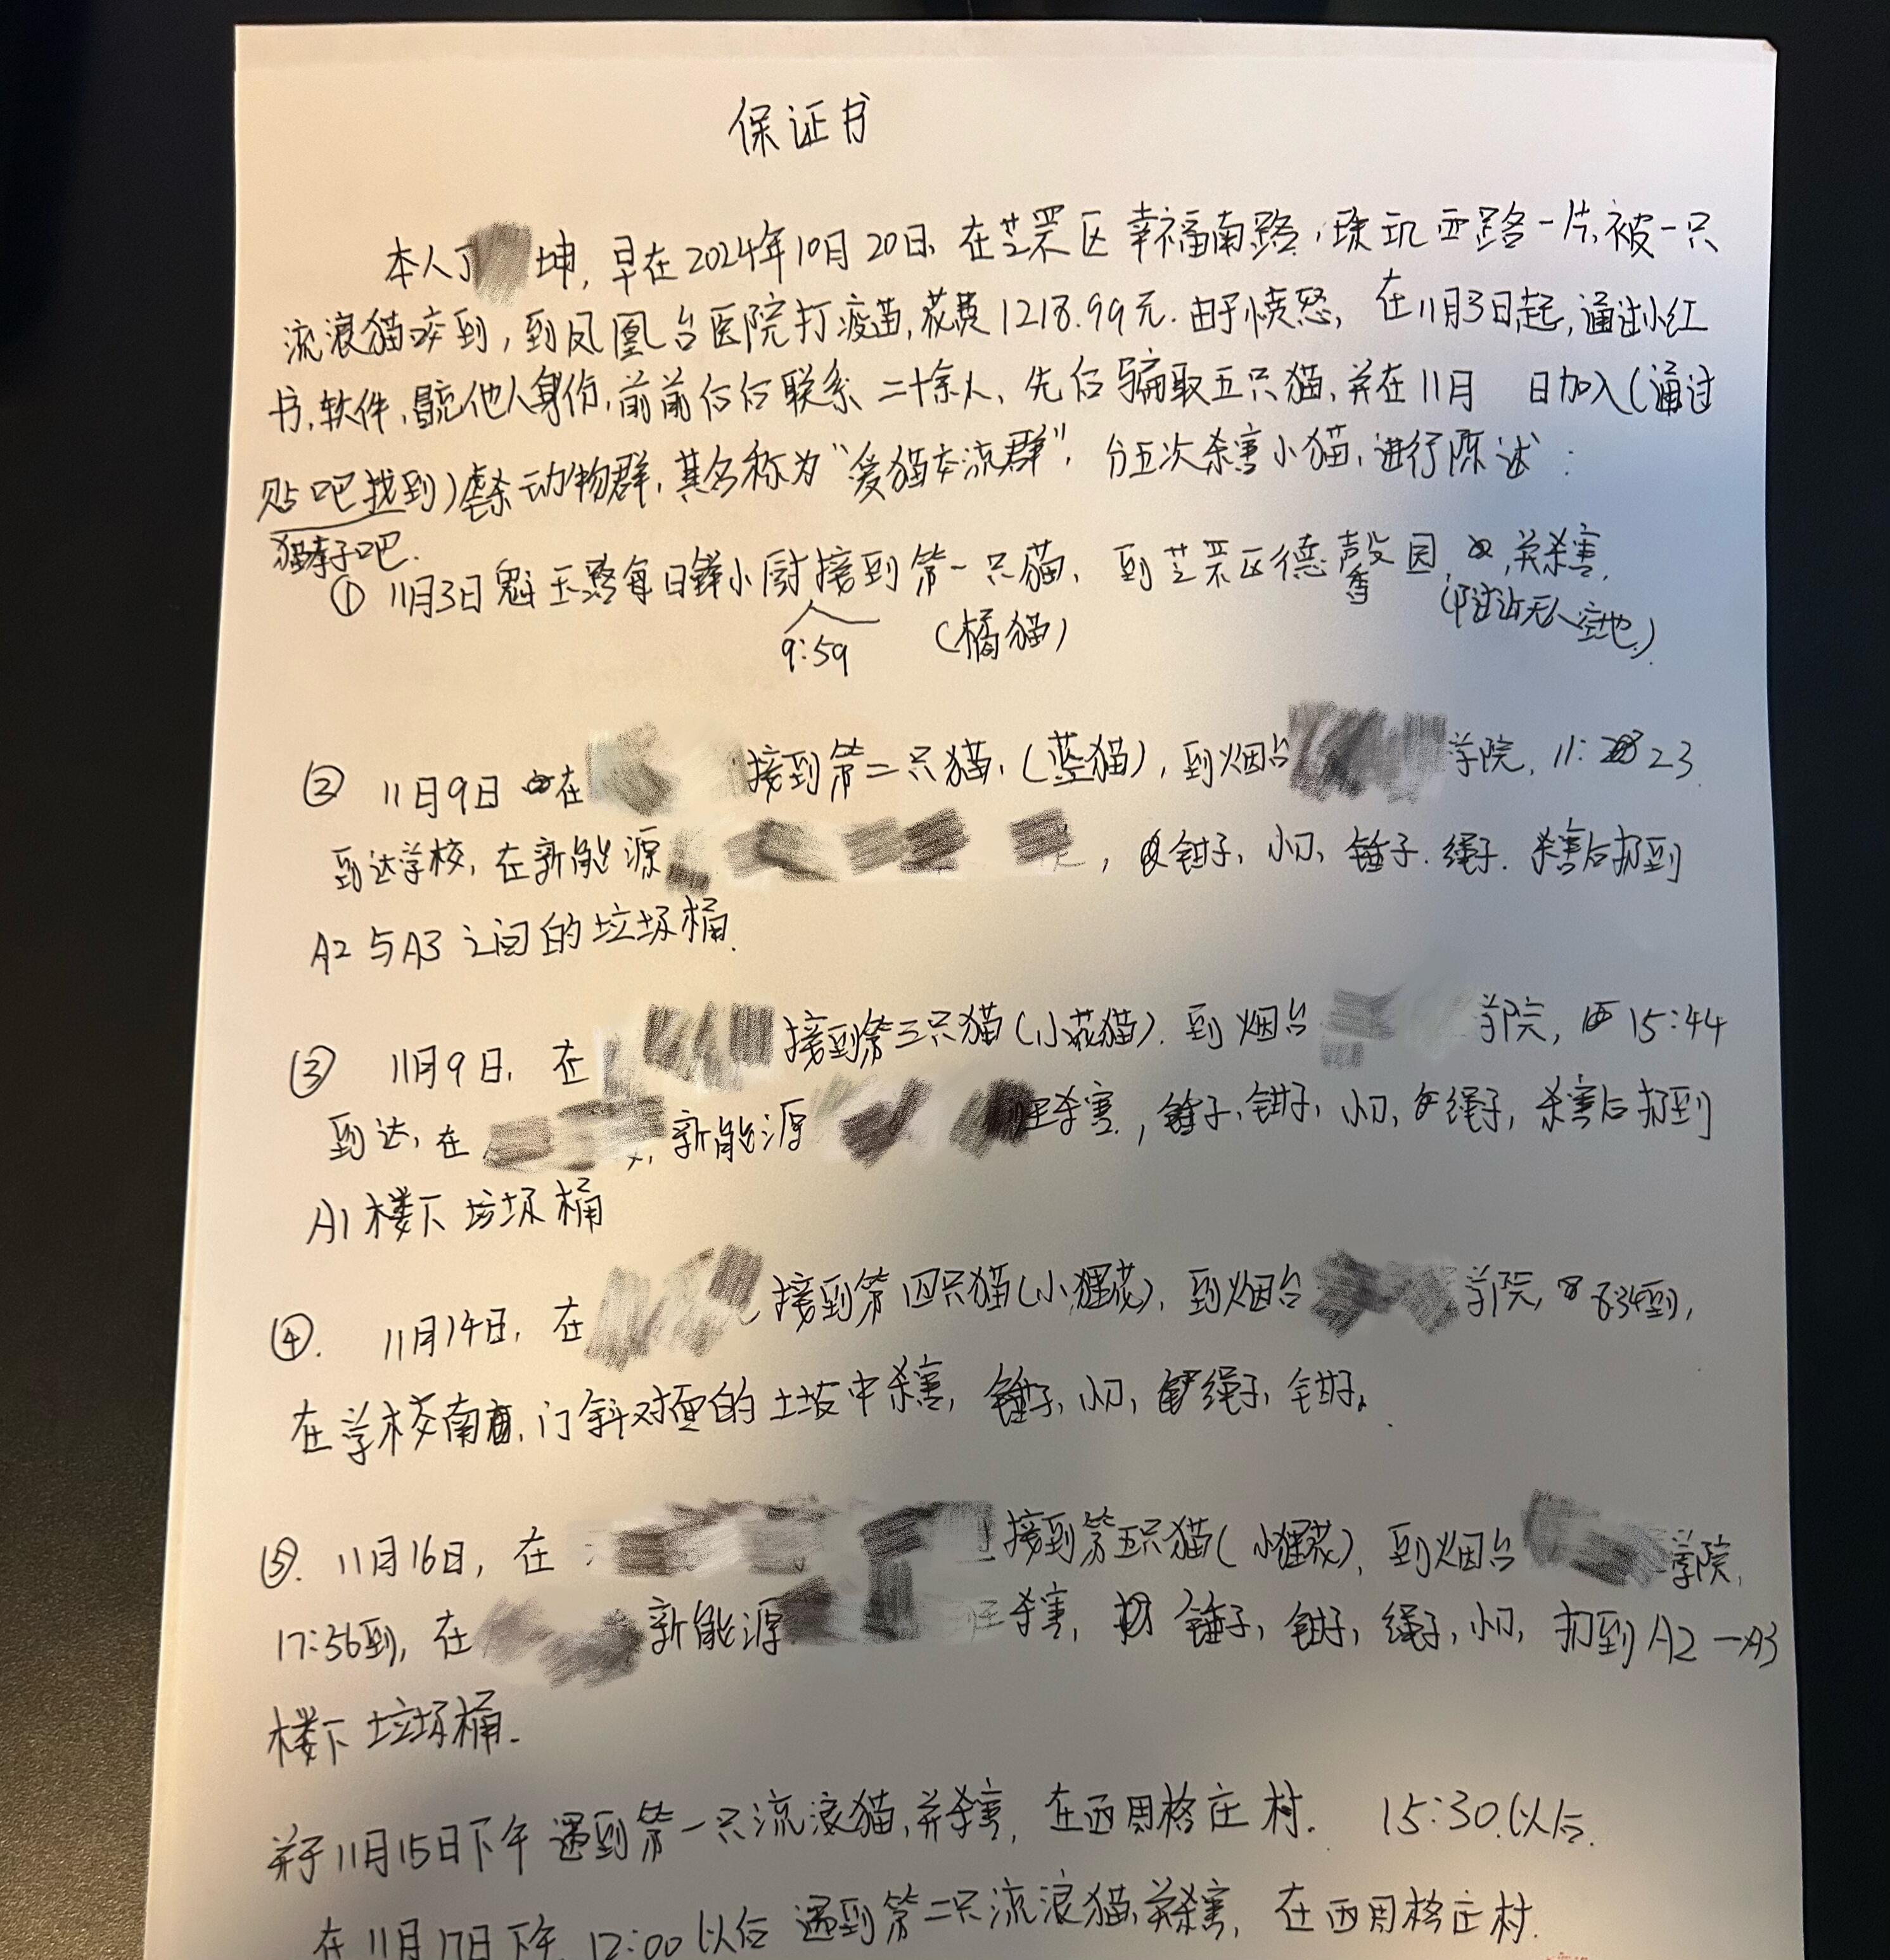 保证书
本人丁 坤，早在2024年10月20日，在芝罘区幸福南路，珠玑西路一片，被一只
流浪猫咬到，到凤凰台医院打疫苗，花费1218.99元.由于愤怒，在11月3日起，通过小红
书，软件，冒充他人身份，前前后后联系二十余人，先后骗取五只猫，并在11月 日加入（通过
贴吧找到）虐杀动物群，其名称为“爱猫交流群”，分五次杀害小猫，进行陈述：
猫孝子吧.
① 11月3日魁玉路每日鲜小厨接到第一只猫，到芝罘区德馨园，并杀害.
9:59 （橘猫） （附近无人空地）
② 11月9日 在 接到第二只猫，（蓝猫），到烟台 学院，11:23
到达学校，在新能源 ，钳子，小刀，锤子.绳子.杀害后扔到
A2与A3之间的垃圾桶.
③ 11月9日，在 接到第三只猫（小花猫）.到烟台 学院，15:44
到达，在 新能源 班杀害，锤子，钳子，小刀，绳子，杀害后扔到
A1楼下垃圾桶
④. 11月14日，在 接到第四只猫（小狸花），到烟台 学院，8:34到，
在学校南门斜对面的土坡中杀害，锤子，小刀，绳子，钳子.
⑤. 11月16日，在 接到第五只猫（小狸花），到烟台 学院，
17:36到，在 新能源 班杀害，锤子，钳子，绳子，小刀，扔到A2—A3
楼下垃圾桶.
并于11月15日下午遇到第一只流浪猫，并杀害，在西周格庄村. 15:30以后.
在11月17日下午 12:00以后 遇到第二只流浪猫，并杀害，在西周格庄村.